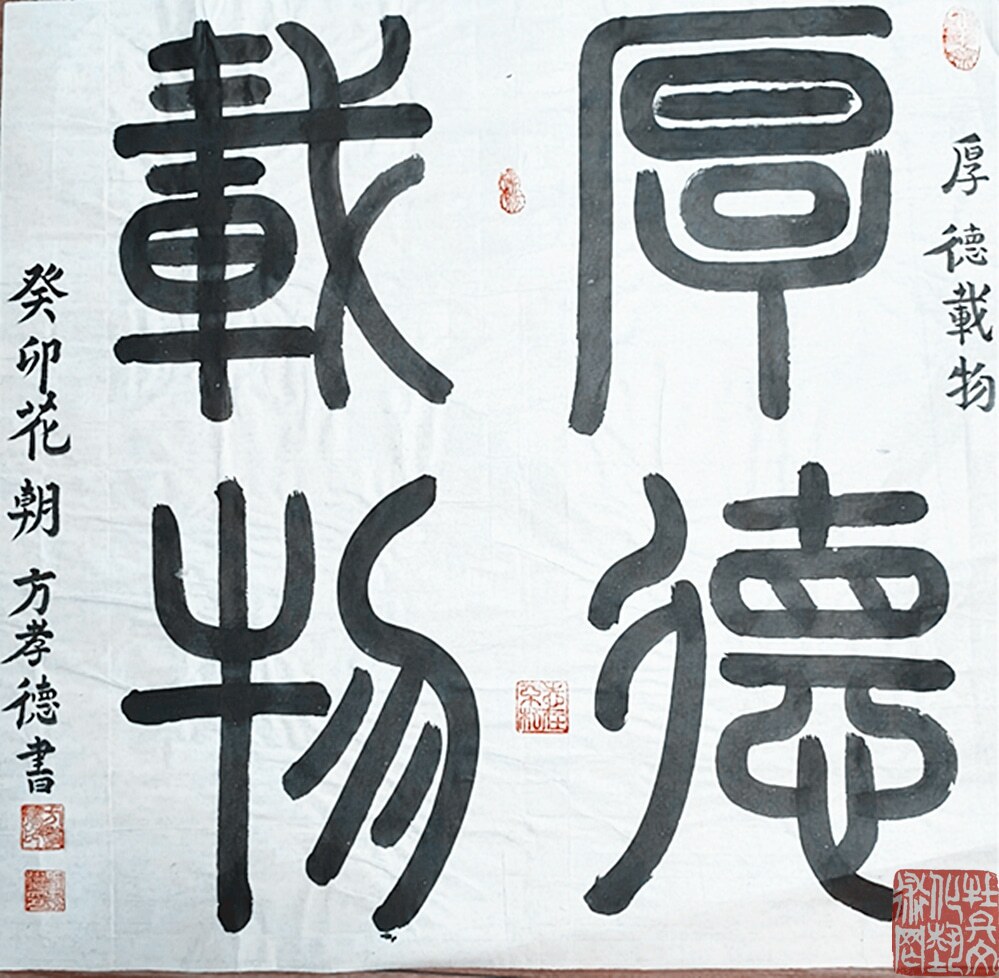 厚德載物
厚德
載物
癸卯花朝方孝德書